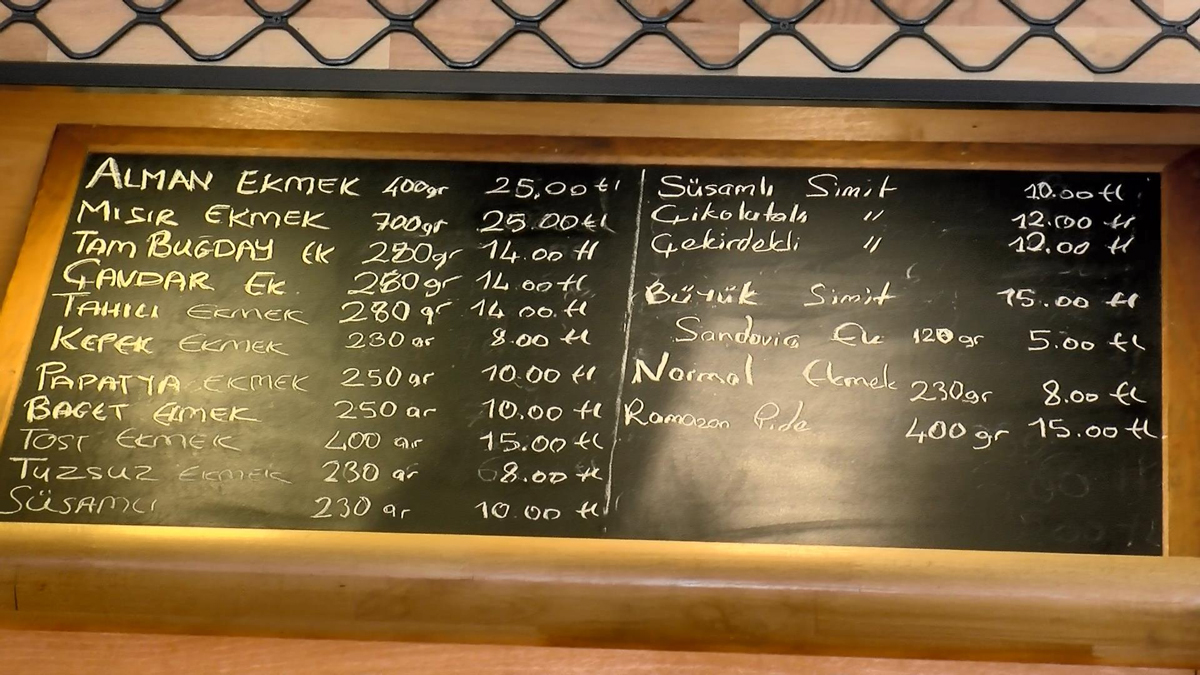 ALMAN EKMEK 400gr 25,00 tl
MISIR EKMEK 700gr 25.00 tl
TAM BUĞDAY EK 280gr 14.00 tl
ÇAVDAR EK. 280gr 14.00 tl
TAHILI EKMEK 280 gr 14.00 tl
KEPEK EKMEK 230 gr 8.00 tl
PAPATYA EKMEK 250 gr 10.00 tl
BAGET EKMEK 250 gr 10.00 tl
TOST EKMEK 400 gr 15.00 tl
TUZSUZ EKMEK 230 gr 8.00 tl
SÜSAMLI 230 gr 10.00 tl
Süsamlı Simit 10.00 tl
Çikolatalı " 12.00 tl
Çekirdekli " 12.00 tl
Büyük Simit 15.00 tl
Sandoviç Ek 120 gr 5.00 tl
Normal Ekmek 230gr 8.00 tl
Ramazan Pide 400 gr 15.00 tl